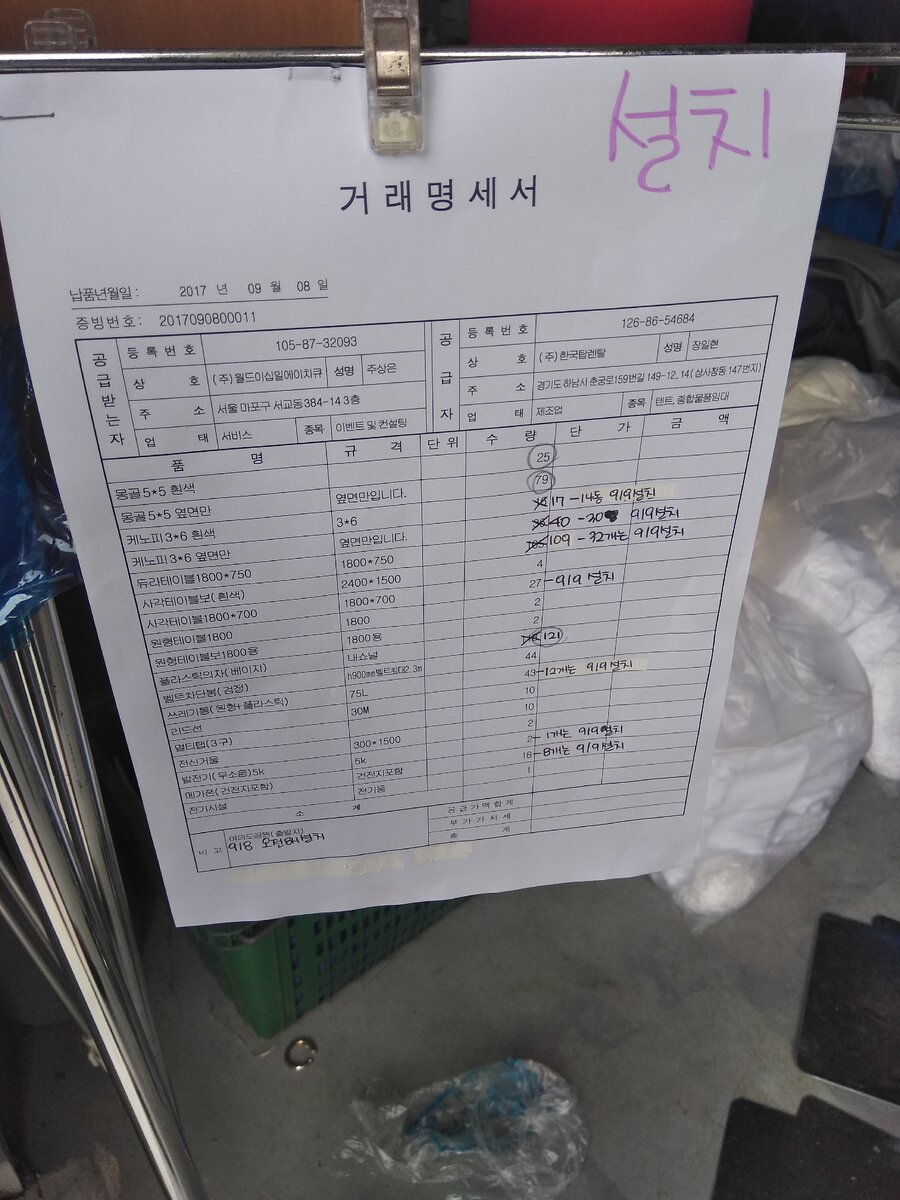 설치
거래명세서
납품년월일: 2017 년 09 월 08 일
증빙번호: 2017090800011
공급받는자 등록번호 105-87-32093 공급자 등록번호 126-86-54684
상호 (주)월드이십일에이치큐 성명 주상은 상호 (주)한국탑렌탈 성명 장일현
주소 서울 마포구 서교동 384-14 3층 주소 경기도 하남시 춘궁로159번길 149-12, 14(상사창동 147번지)
업태 서비스 종목 이벤트 및 컨설팅 업태 제조업 종목 텐트, 종합물품임대
품명 규격 단위 수량 단가 금액
몽골 5*5 흰색 25
몽골 5*5 옆면만 옆면만입니다. 79
케노피 3*6 흰색 3*6 17 -14동 9/9설치
케노피 3*6 옆면만 옆면만입니다. 40 -30 9/9설치
듀라테이블1800*750 1800*750 109 - 32개는 9/9설치
사각테이블보(흰색) 2400*1500 4
사각테이블1800*700 1800*700 27 -9/9 설치
원형테이블1800 1800 2
원형테이블보1800용 1800용 2
플라스틱의자(베이지) 내쇼널 121
벨트차단봉(검정) h900mm벨트최대2.3m 44
쓰레기통(원형+플라스틱) 75L 43 -12개는 9/9설치
리드선 30M 10
멀티탭(3구) 10
전신거울 300*1500 2
발전기(무소음)5k 5k 2 - 1개는 9/9설치
메가폰(건전지포함) 건전지포함 18 -8개는 9/9설치
전기시설 전기용 1
소계 공급가액합계
부가가치세
총계
비고 여의도공원(출발지)
9/8 오전8시설치